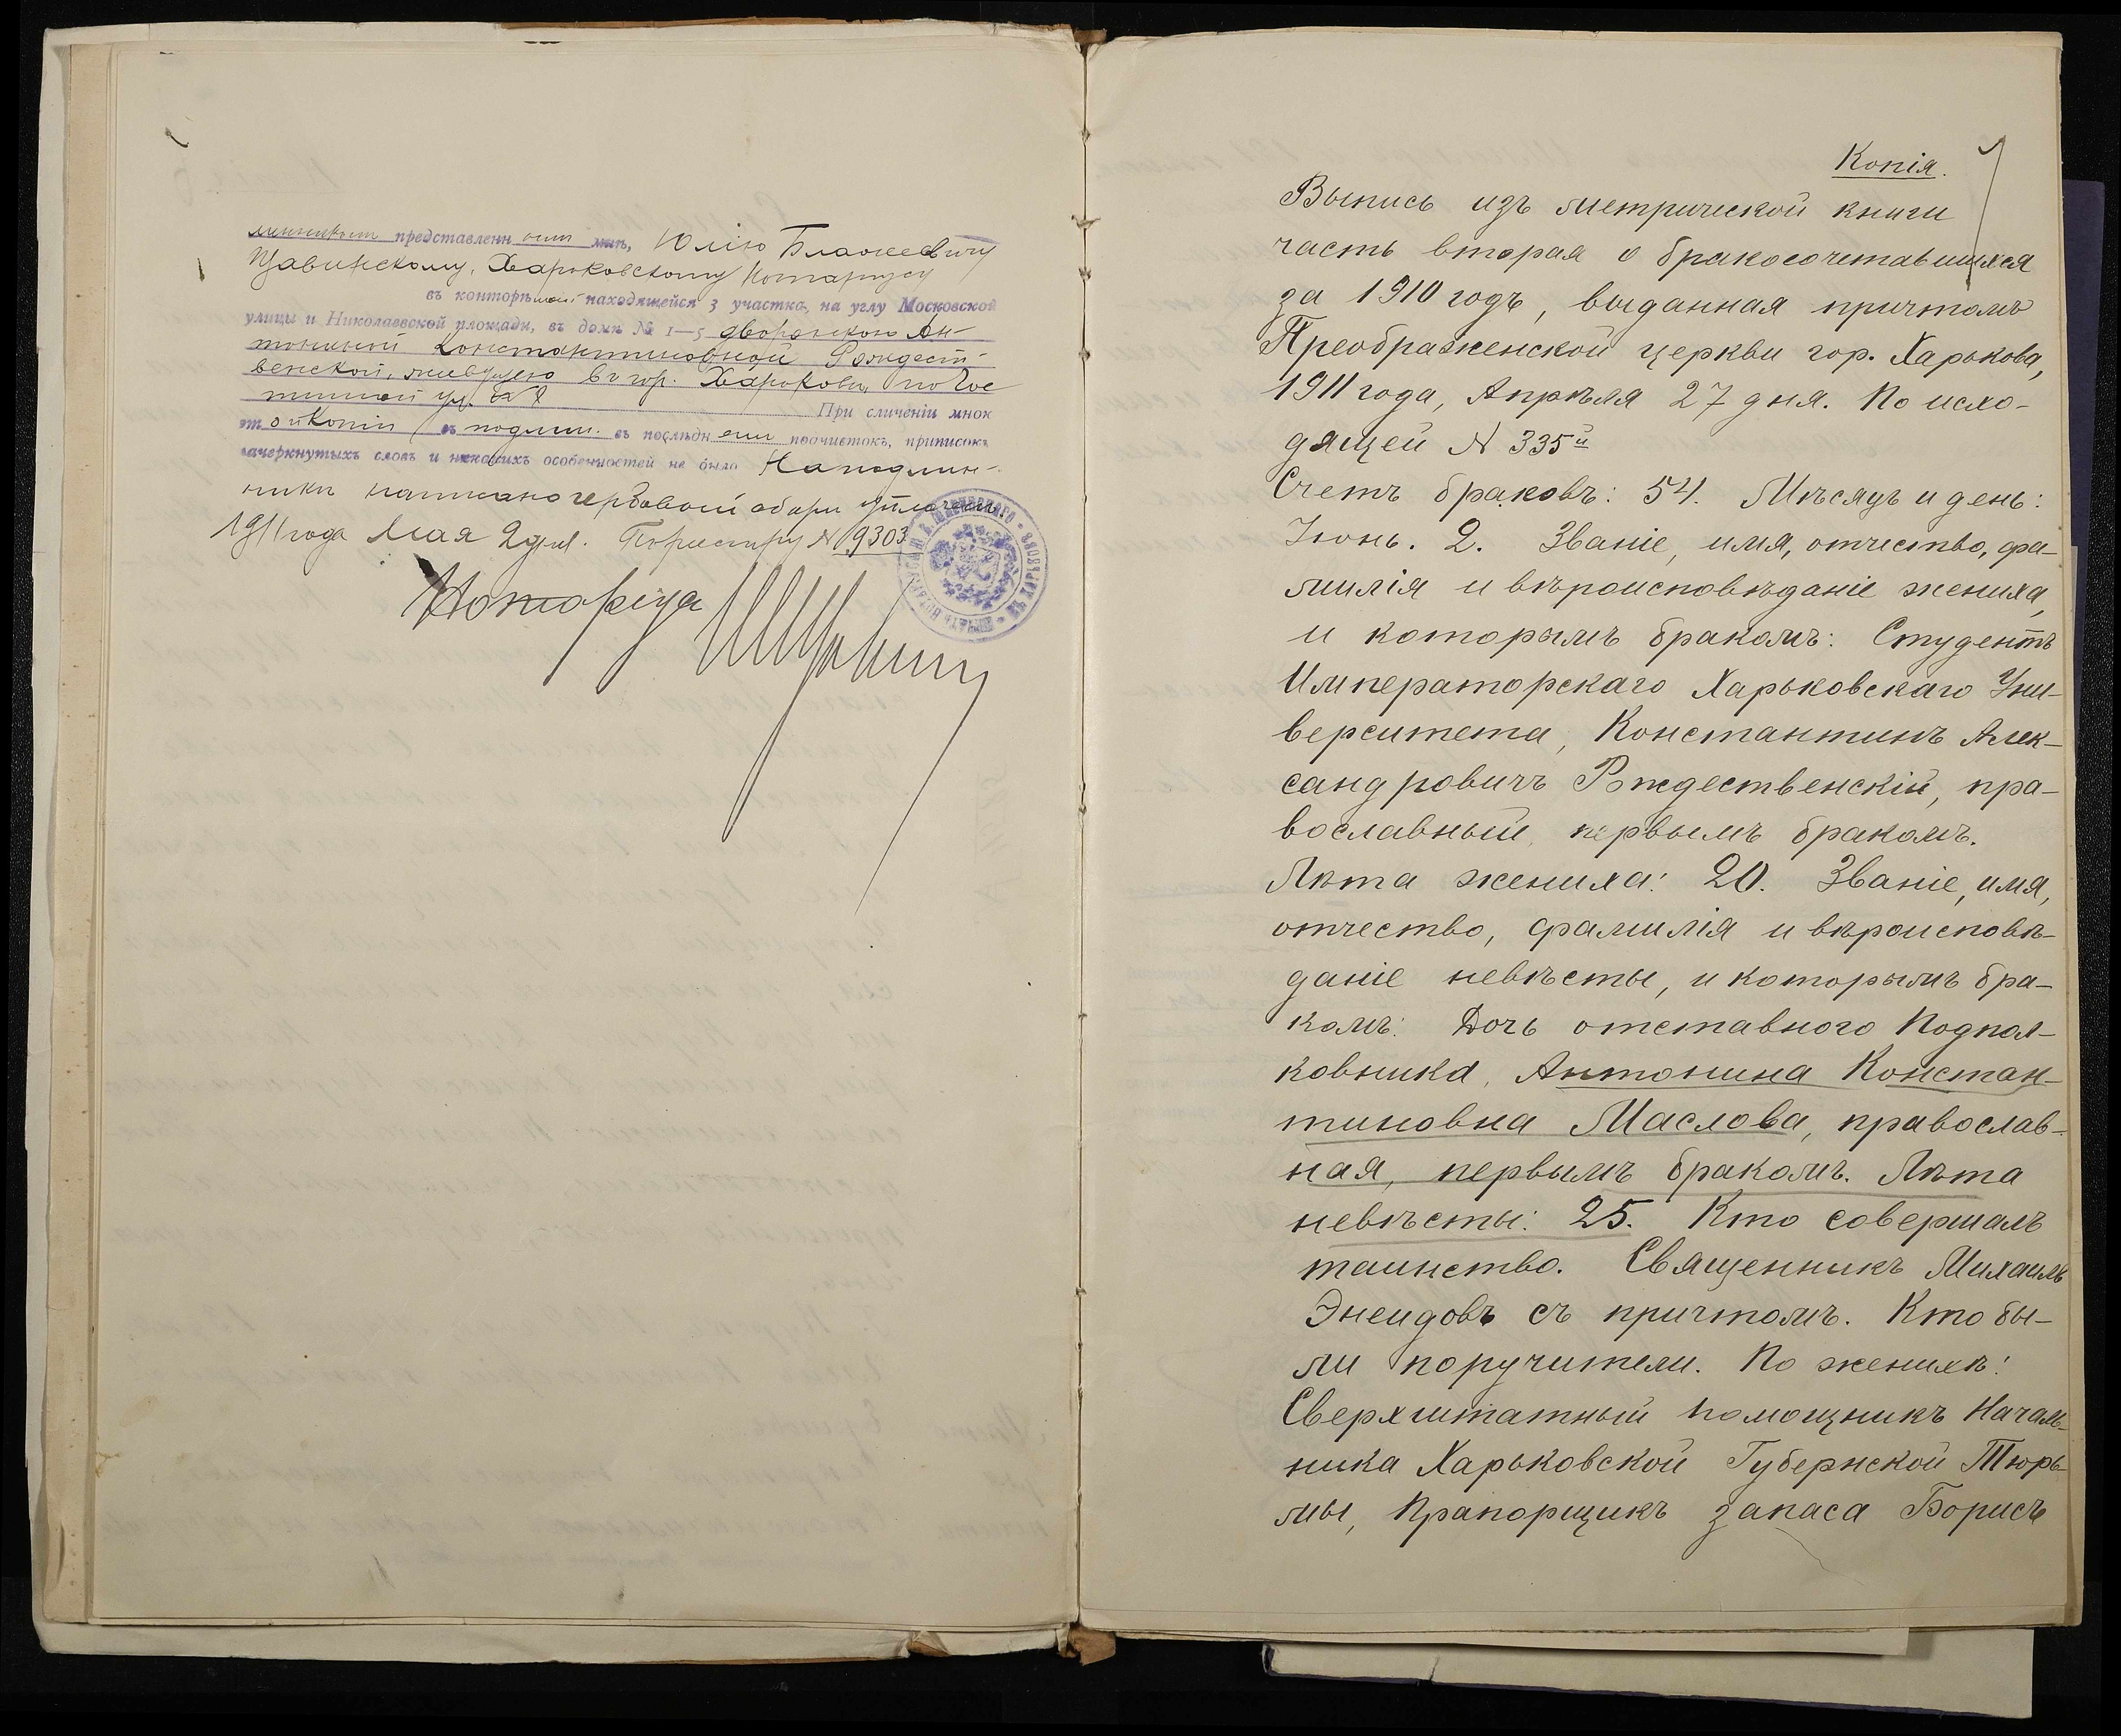 линнымъ представленнымъ мнѣ, Юлію Блажеевичу
Щавинскому, Харьковскому Нотаріусу
въ конторѣ моей находящейся 3 участка, на углу Московской
улицы и Николаевской площади, въ домѣ № 1—5 дворянкою Ан-
тониной Константиновной Рождест-
венской, живущею въ гор. Харьковѣ, по
ул. № 8 При сличеніи мною
этой копіи съ подлин. въ послѣднемъ подчистокъ, приписокъ
зачеркнутыхъ словъ и никакихъ особенностей не было На подлин-
никѣ написано гербовый сборъ уплаченъ.
1911 года Мая 2 дня. По реестру № 9303
Нотаріусъ
Копія.
Выпись изъ метрической книги
часть вторая о бракосочетавшихся
за 1910 годъ, выданная причтомъ
Преображенской церкви гор. Харькова,
1911 года, Апрѣля 27 дня. По исхо-
дящей № 335й
Счетъ браковъ: 54. Мѣсяцъ и день:
Іюнь. 2. Званіе, имя, отчество, фа-
милія и вѣроисповѣданіе жениха,
и которымъ бракомъ: Студентъ
Императорскаго Харьковскаго Уни-
верситета, Константинъ Алек-
сандровичъ Рождественскій, пра-
вославный, первымъ бракомъ.
Лѣта жениха: 20. Званіе, имя,
отчество, фамилія и вѣроисповѣ-
даніе невѣсты, и которымъ бра-
комъ: Дочь отставного Подпол-
ковника, Антонина Констан-
тиновна Маслова, православ-
ная, первымъ бракомъ. Лѣта
невѣсты: 25. Кто совершалъ
таинство. Священникъ Михаилъ
Энеидовъ съ причтомъ. Кто бы-
ли поручители. По женихѣ:
Сверхштатный помощникъ Началь-
ника Харьковской Губернской Тюрь-
мы, Прапорщикъ запаса Борисъ